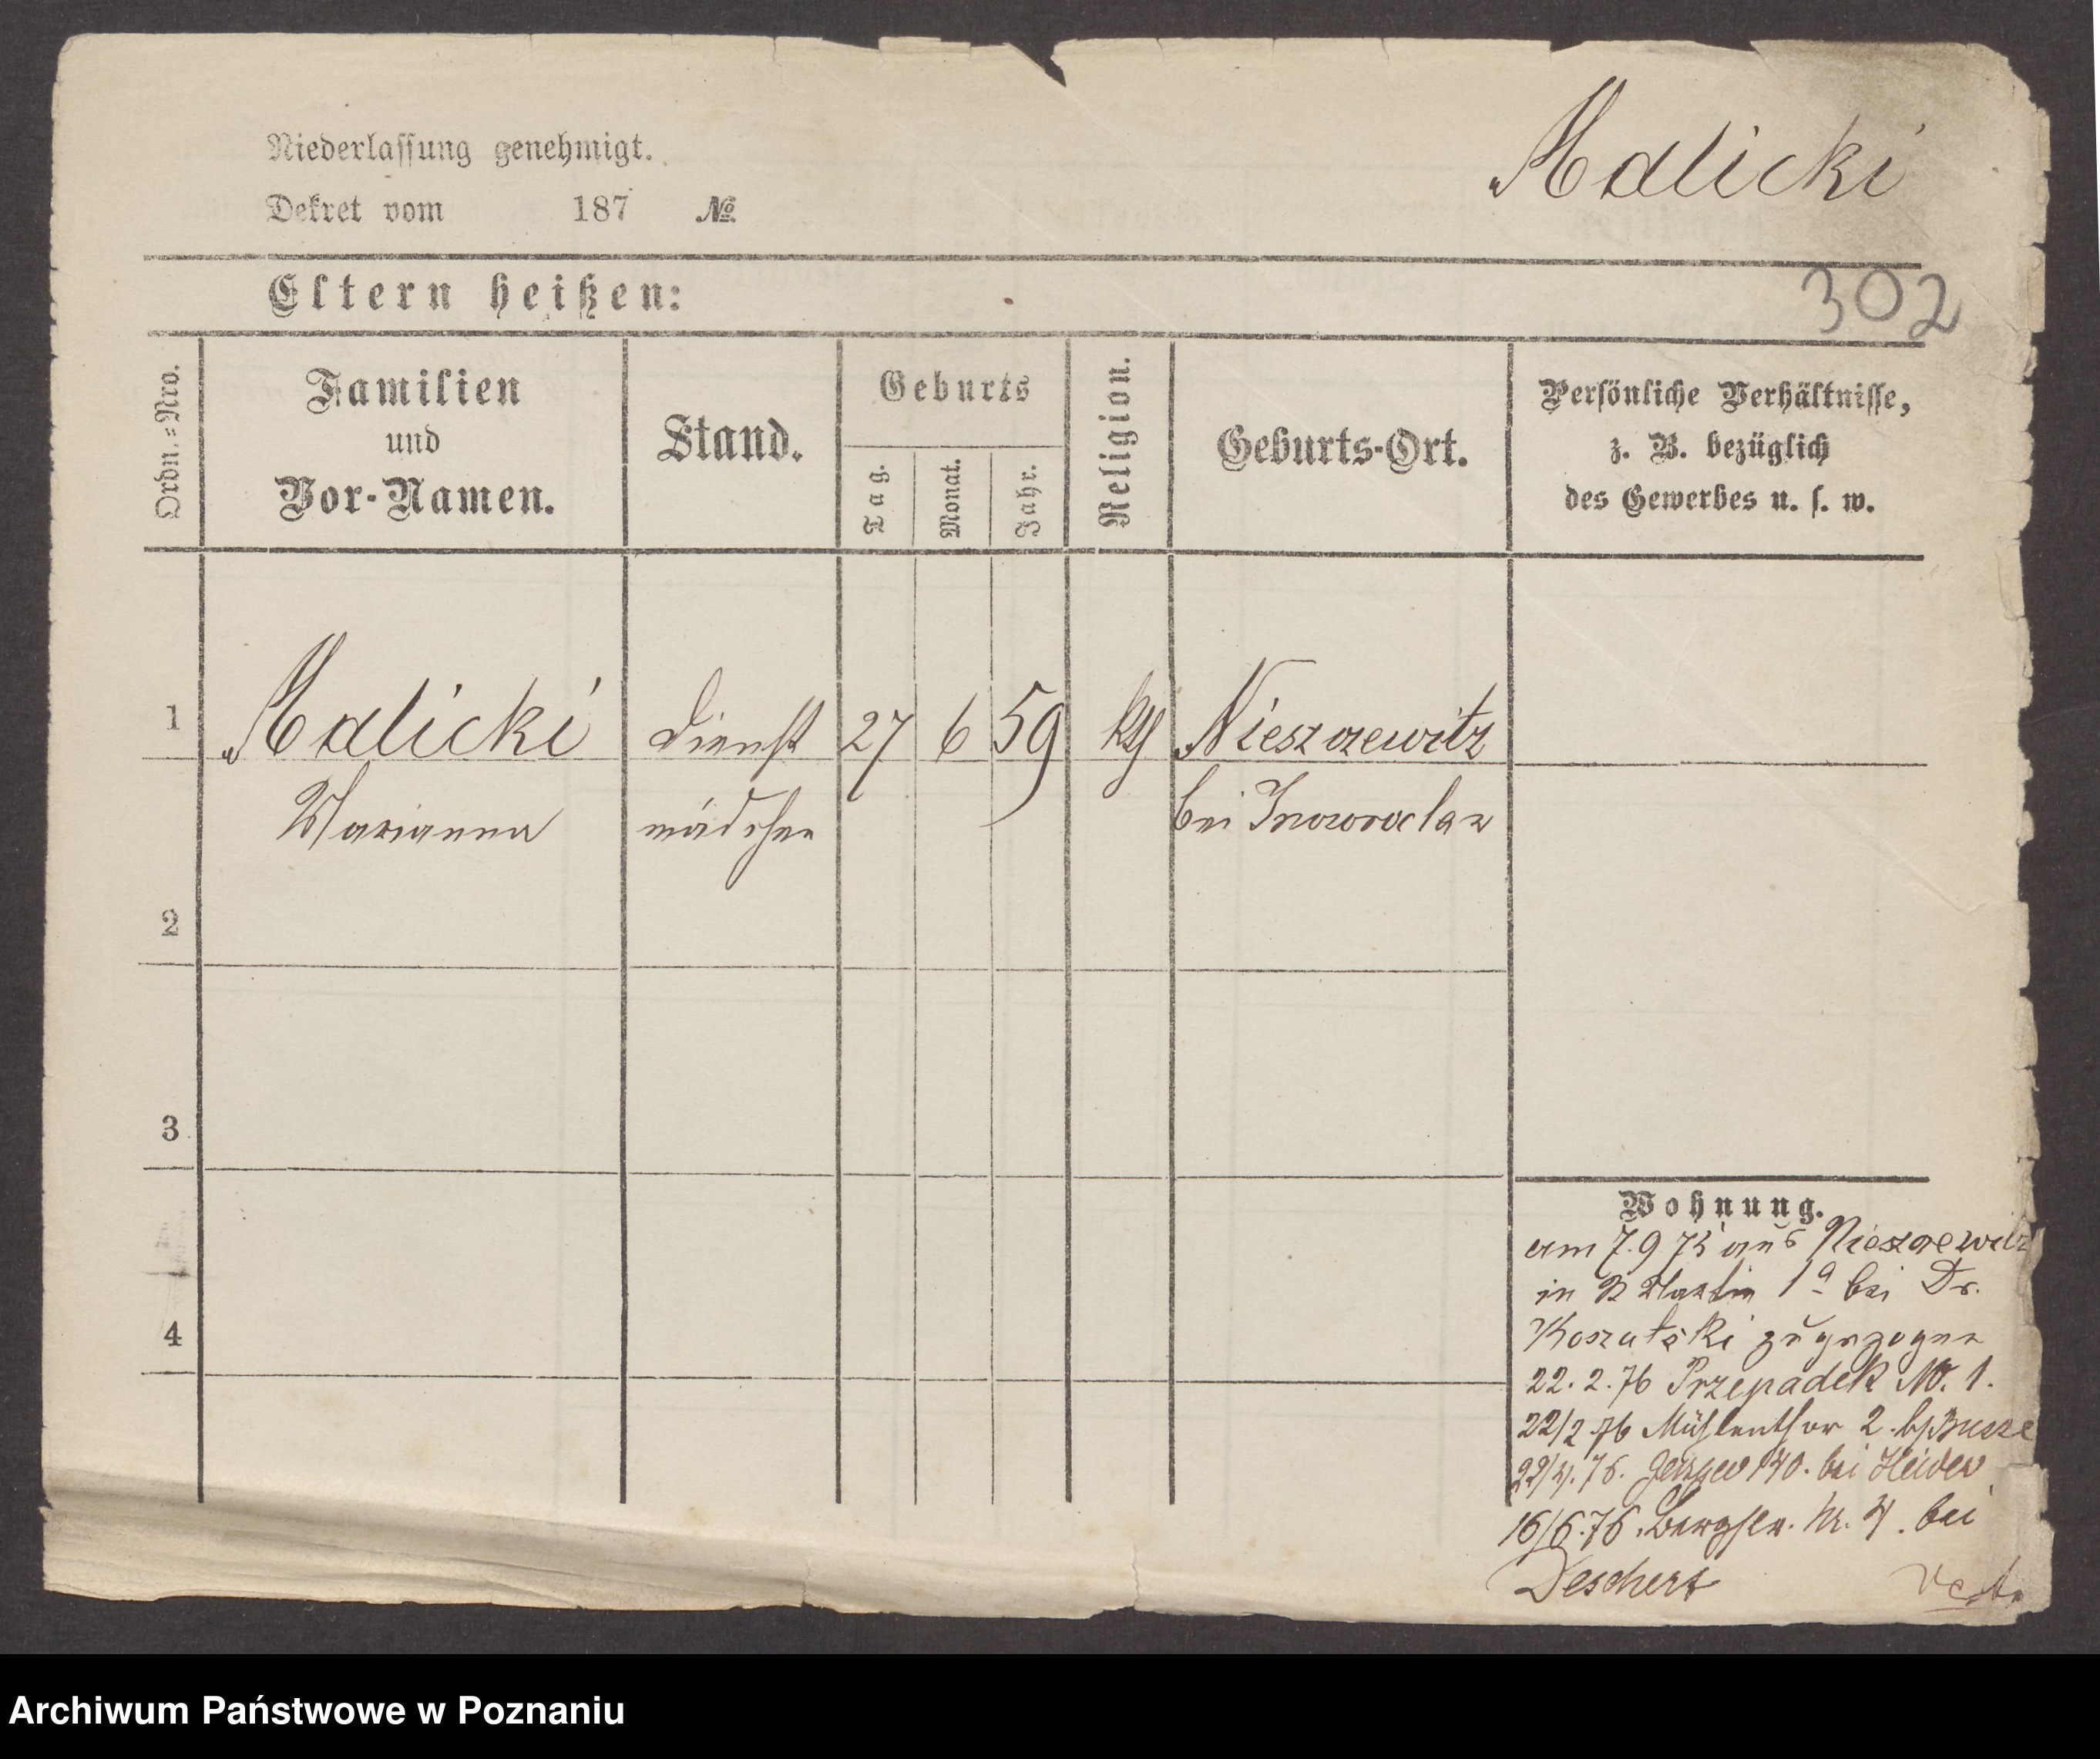 Malicki
Niederlassung genehmigt.
Dekret vom 187 №
302
Eltern heißen:
Ordn.=Nro.
Familien
und
Vor-Namen.
Stand.
Geburts
Tag.
Monat.
Jahr.
Religion.
Geburts-Ort.
Persönliche Verhältnisse,
z. B. bezüglich
des Gewerbes u. s. w.
1 Malicki Dienst 27 6 59 Nieszczewitz
Marianna mädchen bei Inowraclaw
2
3
4
Wohnung.
am 7.9 75 aus
in St Martin 1a bei Dr.
Koszutski zugezogen
22.2.76 Przepadek No. 1.
22/2 76 Mühlenthor 2 b/Busse
22/4.76. 140. bei
16/6.76. Bergstr. Nr. 4. bei
Deschert
Archiwum Państwowe w Poznaniu